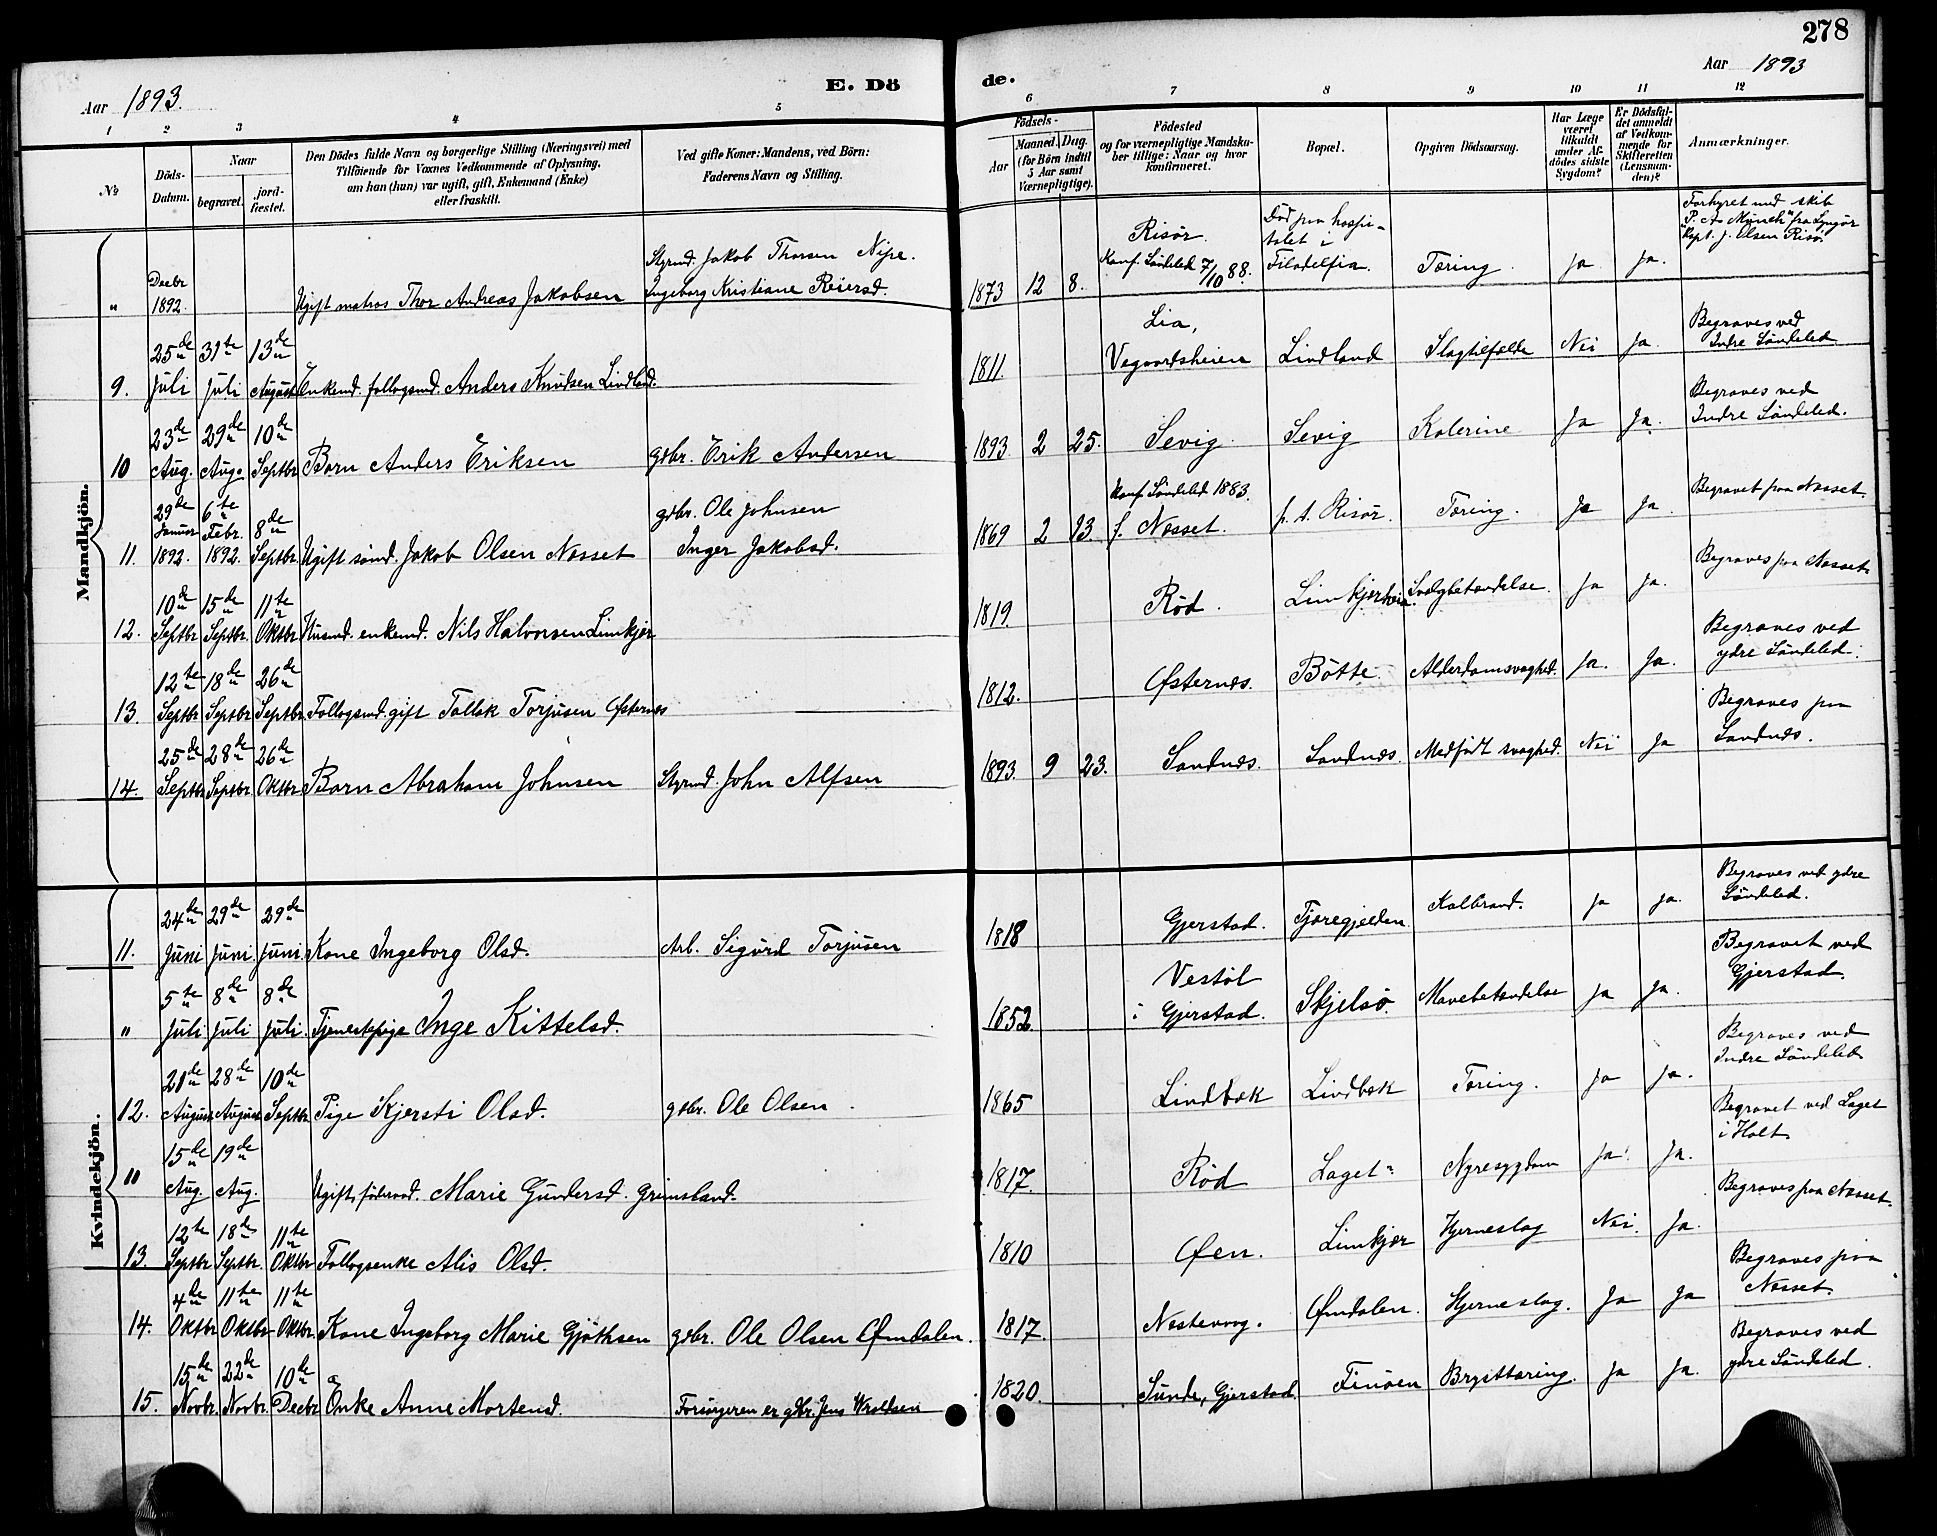 278
Aar 1893.
E. Dö
de.
Aar 1893
1 2 3 4 5 6 7 8 9 10 11 12
№
Döds-
Datum.
Naar
begravet.
jord-
fæstet.
Den Dödes fulde Navn og borgerlige Stilling (Næringsvei) med
Tilföiende for Voxnes Vedkommende af Oplysning,
om han (hun) var ugift, gift, Enkemand (Enke)
eller fraskilt.
Ved gifte Koner: Mandens, ved Börn:
Faderens Navn og Stilling.
Födsels-
Aar
Maaned. Dag.
(for Börn indtil
5 Aar samt
Værnepligtige).
Födested
og for værnepligtige Mandska-
ber tillige: Naar og hvor
konfirmeret.
Bopæl.
Opgiven Dödsaarsag.
Har Læge
været
tilkaldt
under Af-
dödes sidste
Sygdom?
Er Dödsfal-
det anmeldt
af Vedkom-
mende for
Skifteretten
(Lensman-
den)?
Anmærkninger.
Mandkjön.
" Decbr 1892. Ugift matros Thor Andreas Jakobsen
Styrmd. Jakob Thorsen Nipe.
Ingeborg Kristiane Reiersd.
1873 12 8. Risør.
Konf. Söndeled 7/10 88.
Död paa hospi-
talet i
Filadelfia.
Tæring. ja ja.
Forhyret med skib
"P. A. Munch" fra Lyngør
Kapt. J. Olsen Risør
9. 25de Juli 31te Juli 13de August Enkemd. follogsmd. Anders Knudsen Lindland.
1811 Lia,
Vegaardsheien Lindland Slagtilfælde Nei Ja.
Begraves ved
Indre Söndeled
10 23de Aug. 29de Aug. 10de Septbr Barn Anders Eriksen gdbr. Erik Andersen
1893. 2 25. Sevig. Sevig Kolerine Ja Ja.
Begraves ved
Indre Söndeled.
11. 29de Januar 1892. 6te Febr. 1892. 8de Septbr. Ugift sömd. Jakob Olsen Næsset
gdbr. Ole Johnsen
Inger Jakobsd.
1869 2 13. Konf. Söndeled 1883.
f. Næsset. p. t. Risør. Tæring. Ja Ja.
Begravet paa Næsset.
12. 10de Septbr 15de Septbr. 11te Oktbr. Husmd. enkemd. Nils Halvorsen Limkjær
1819. Rød. Limkjærheia. Svælgbetændelse. Ja Ja.
Begraves paa Næsset
13. 12te Septbr 18de Septbr 26de Septbr Follogsmd. gift Tallak Torjusen Østernes
1812. Østernes. Bötte. Alderdomssvaghed. Ja. Ja.
Begraves ved
ydre Söndeled.
14. 25de Septbr 28de Septbr 26de Oktbr Barn Abraham Johnsen Styrmd. John Alfsen
1893. 9 23. Sandnæs. Sandnæs. Medfødt svaghed. Nei Ja
Begraves paa
Sandnæs.
Kvindekjön.
11. 24de Juni 29de Juni. 29de Juni. Kone Ingeborg Olsd. Arb. Sigurd Torjusen
1818 Gjerstad. Tjæregjelden Kolbrand. ja ja.
Begraves ved ydre
Söndeled.
" 5te Juli 8de Juli 8de Juli. Tjenestepige Inge Kittelsd.
1852. Vestøl
i Gjerstad. Skjelsø. Mavebetændelse ja Ja.
Begravet ved
Gjerstad.
12. 21de August 28de August 10de Septbr Pige Kjersti Olsd. gdbr. Ole Olsen.
1865 Lindbæk Lindbæk Tæring. ja ja.
Begraves ved
Indre Söndeled
" 15de Aug. 19de Aug. Ugift, föderaad. Marie Gundersd. Grimsland.
1817. Rød Laget Nyresygdom Ja. Ja.
Begravet ved Laget
i Holt.
13. 12te Septbr 18de Septbr. 11te Oktbr Follogsenke Alis Olsd.
1810 Øen. Limkjær Hjerneslag Nei. Ja.
Begraves paa Næsset.
14. 4de Oktbr 11te Oktbr 11te Oktbr. Kone Ingeborg Marie Gjøthsen gdbr. Ole Olsen Ømdalen.
1817. Næstevaag. Ømdalen. Hjerneslag. Ja Ja
Begraves paa
Næsset.
15. 15de Novbr. 22de Novbr. 10de Decbr Enke Anne Mortensd. Forsørgeren er gdbr. Jens
1820. Sunde, Gjerstad. Finøen Brysttæring. Ja Ja.
Begraves ved
ydre Söndeled.